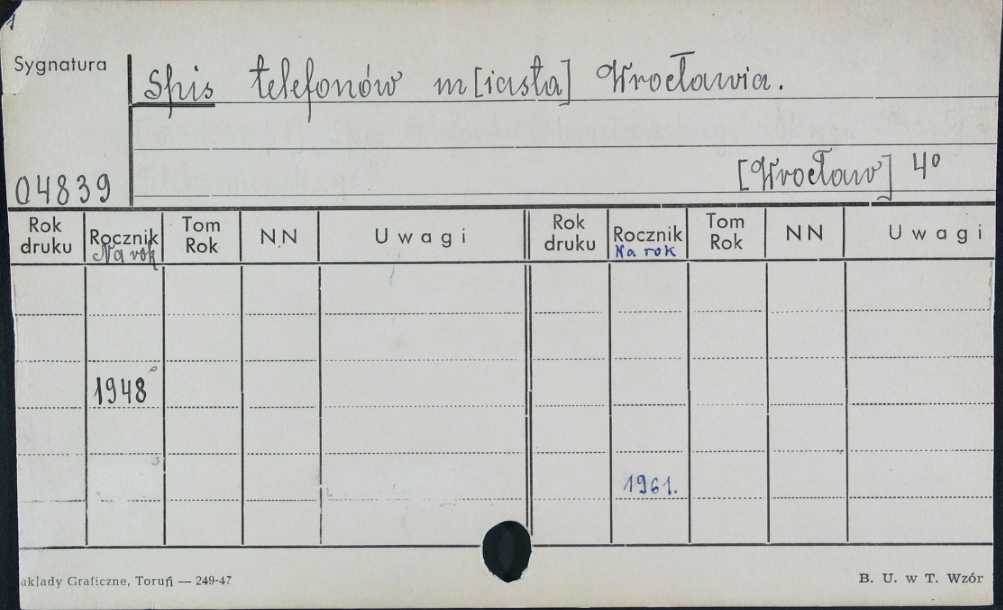 1
Sygnatura
Spis telefonów m[iasta] Wrocławia.
[Wrocław] 4°
04839
Rok druku Rocznik Tom Rok NN Uwagi Rok druku Rocznik Tom Rok NN Uwagi
Na rok Na rok
1948
1961.
akłady Graficzne, Toruń — 249-47 B. U. w T. Wzór